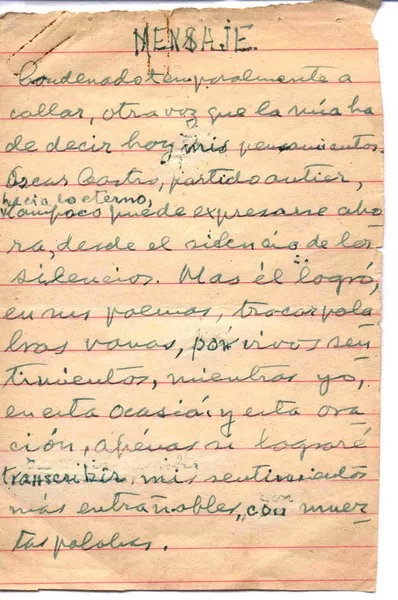 MENSAJE.
Condenado temporalmente a
callar, otra voz que la mía ha
de decir hoy mis pensamientos.
Oscar Castro, partido antier,
hacia lo eterno,
tampoco puede expresarse aho
ra, desde el silencio de los
silencios. Mas él logró,
en sus poemas, trocar pala
bras vanas, por vivos sen
timientos, mientras yo,
en esta ocasión y esta ora
ción, apenas si lograré
transcribir, mis sentimientos
más entrañables, con muer
tas palabras.